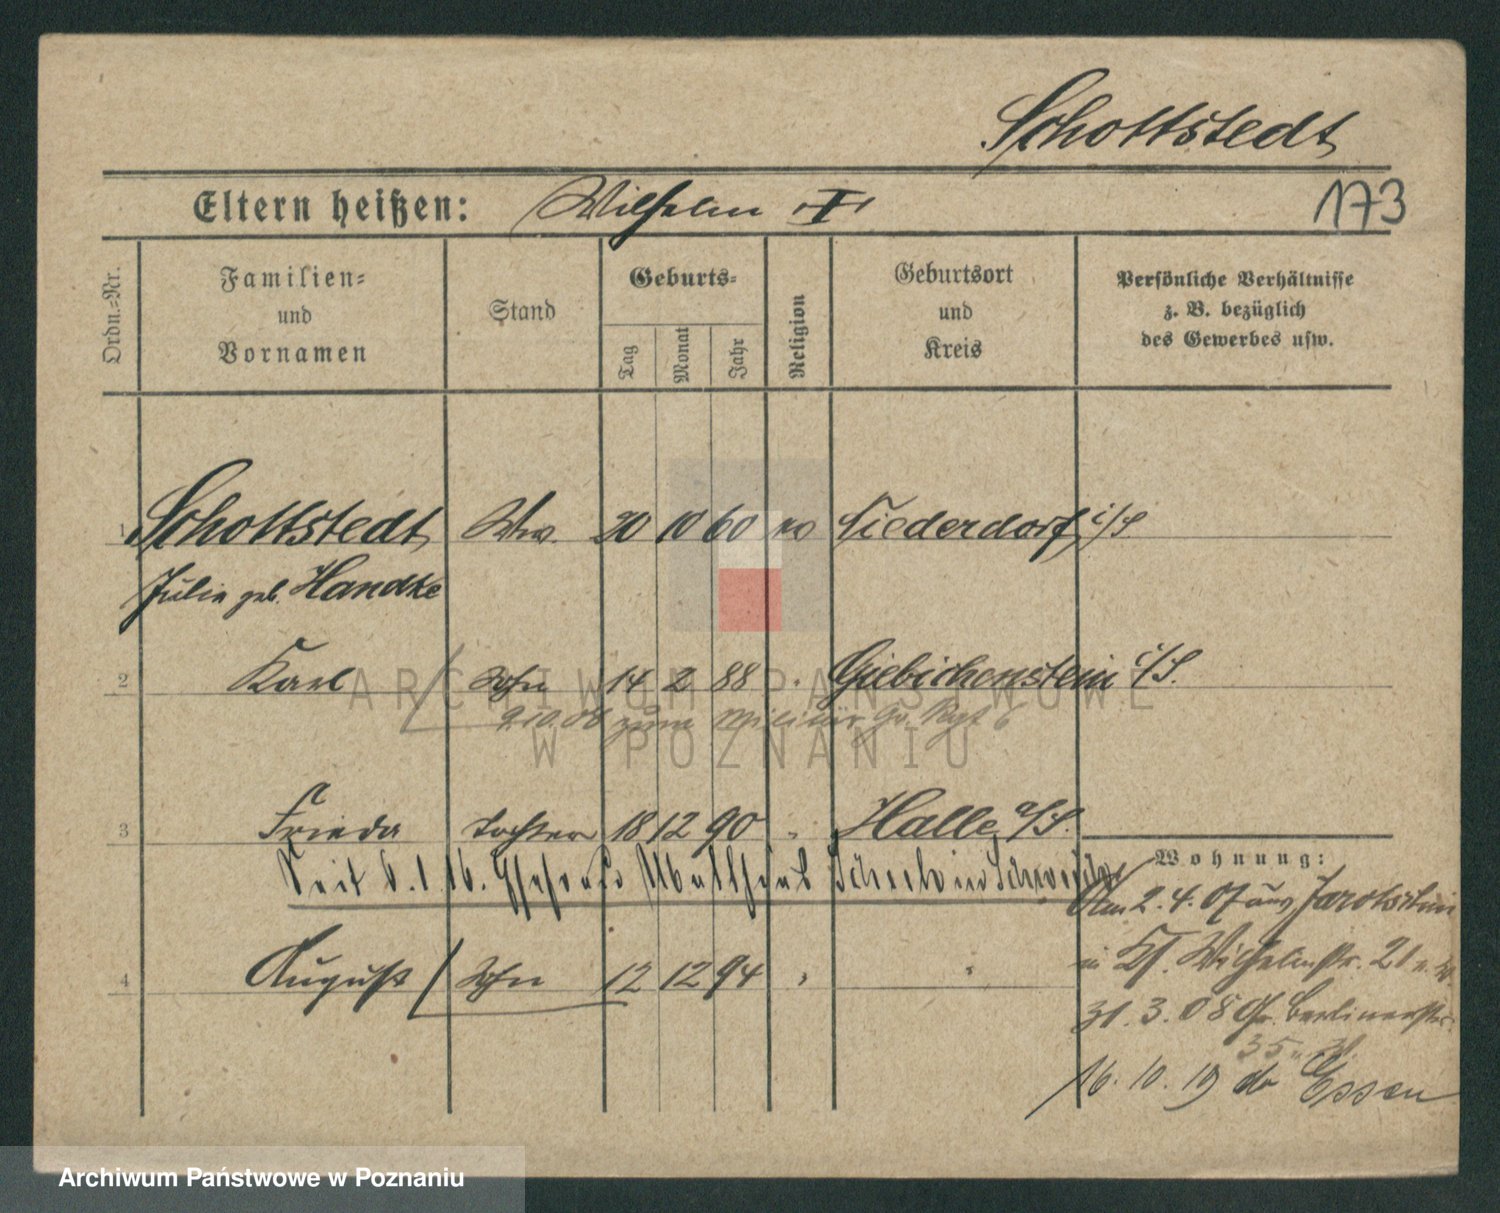 Schottstedt
Eltern heißen: Wilhelm
173
Ordn.=Nr.
Familien=
und
Vornamen
Stand
Geburts=
Tag
Monat
Jahr
Religion
Geburtsort
und
Kreis
Persönliche Verhältnisse
z. B. bezüglich
des Gewerbes usw.
1 Schottstedt Ww. 20 10 60 Niederdorf i/S.
Julie geb. Handke
2 Karl Sohn 14 2 88 " Giebichenstein i/S.
9.10.08 zum Militär Rgt 6
3 Frieda Tochter 18 12 90 " Halle a/S.
Seit 6.1.16.
4 August Sohn 12 12 94 " "
Wohnung:
Am 2.4.07 aus Jarotschin
in Wilhelmstr. 21
31.3.08 Gr. Berlinerstr.
35
16.10.19 Essen
ARCHIWUM PAŃSTWOWE
W POZNANIU
Archiwum Państwowe w Poznaniu